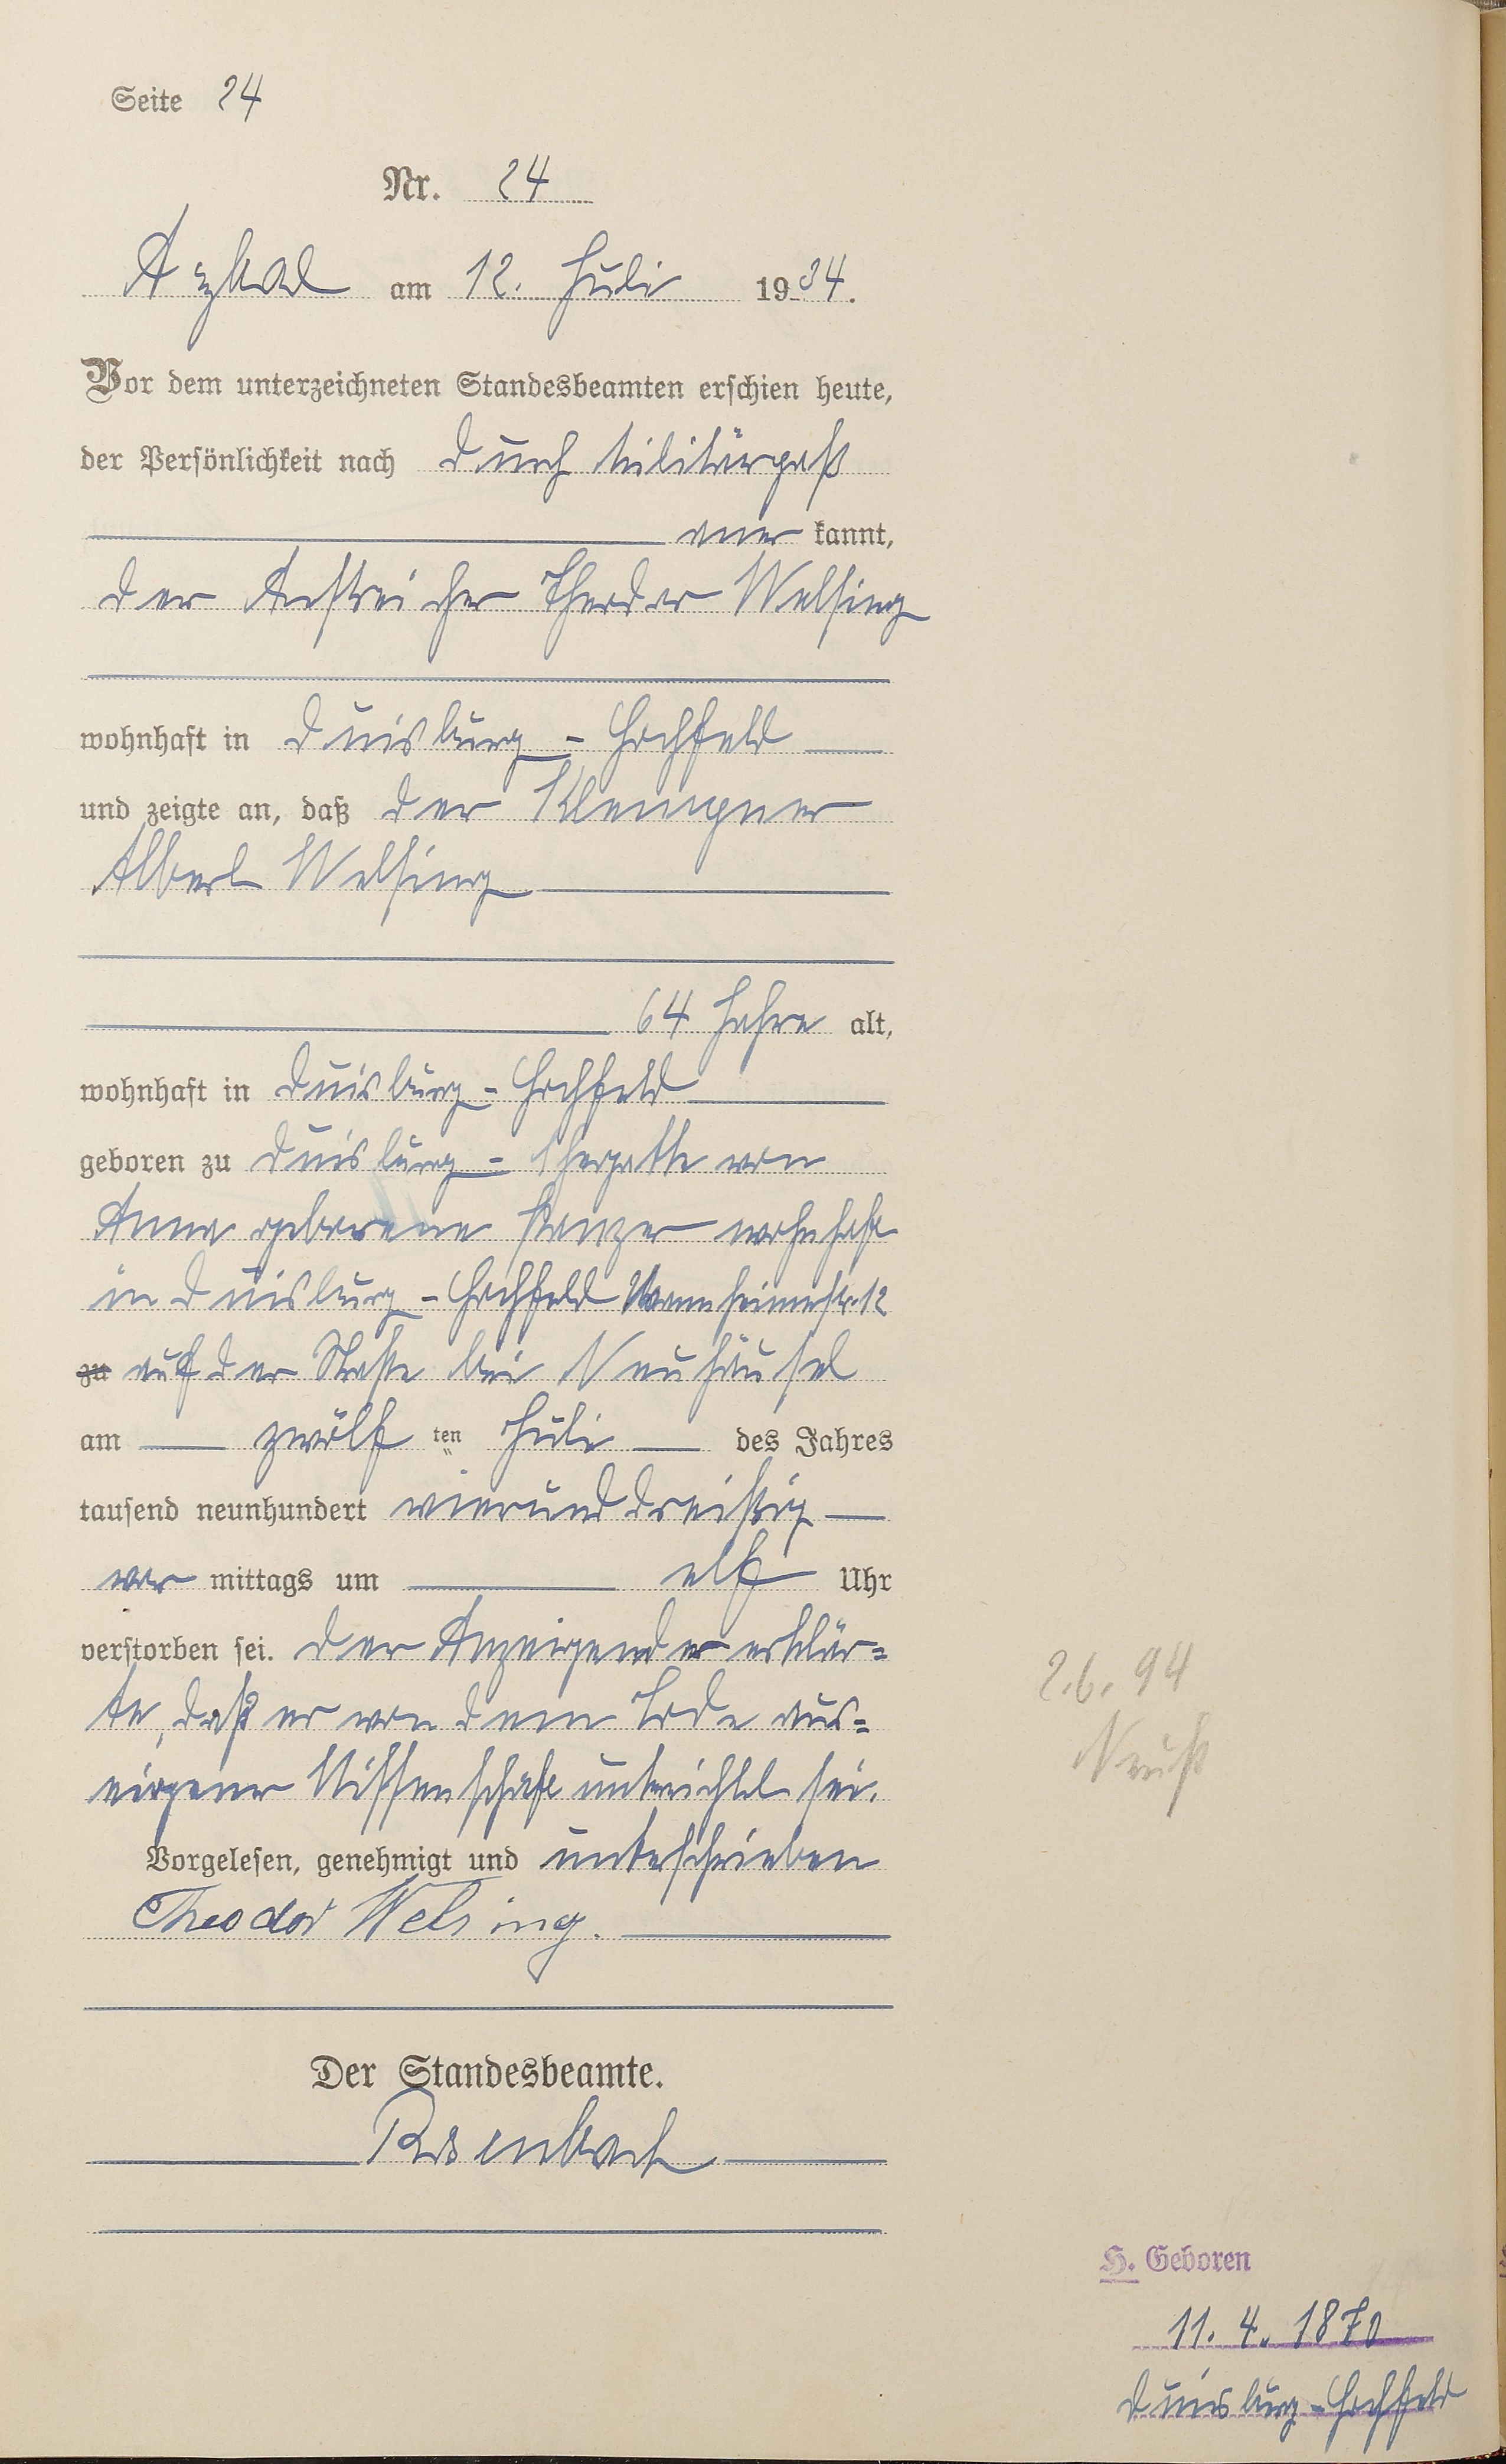 Seite 24
Nr. 24
Arzbach am 12. Juli 1934.
Vor dem unterzeichneten Standesbeamten erschien heute,
der Persönlichkeit nach durch Militärpaß
aner kannt,
der Anstreicher Theodor Welsing
wohnhaft in Duisburg - Hochfeld
und zeigte an, daß der Klempner
Albert Welsing
64 Jahre alt,
wohnhaft in Duisburg - Hochfeld
geboren zu Duisburg - Ehegatte von
Anna geborene wohnhaft
in Duisburg - Hochfeld Wanheimerstr. 12
zu auf der Straße bei Neuhäusel
am zwölf ten Juli des Jahres
tausend neunhundert vierunddreißig
vor mittags um elf Uhr
verstorben sei. Der Anzeigender erklär=
te, daß er von dem Tode aus=
eigener Wissenschaft unterrichtet sei.
Vorgelesen, genehmigt und unterschrieben
Theodor Welsing.
Der Standesbeamte.
Rosenbach
2.6. 94
Neuß
H. Geboren
11. 4. 1870
Duisburg - Hochfeld